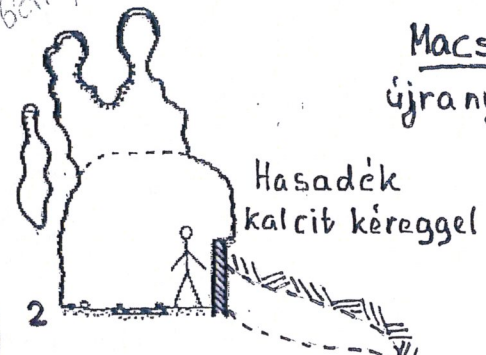 Macs
újrany
Hasadék
kalcit kéreggel
2